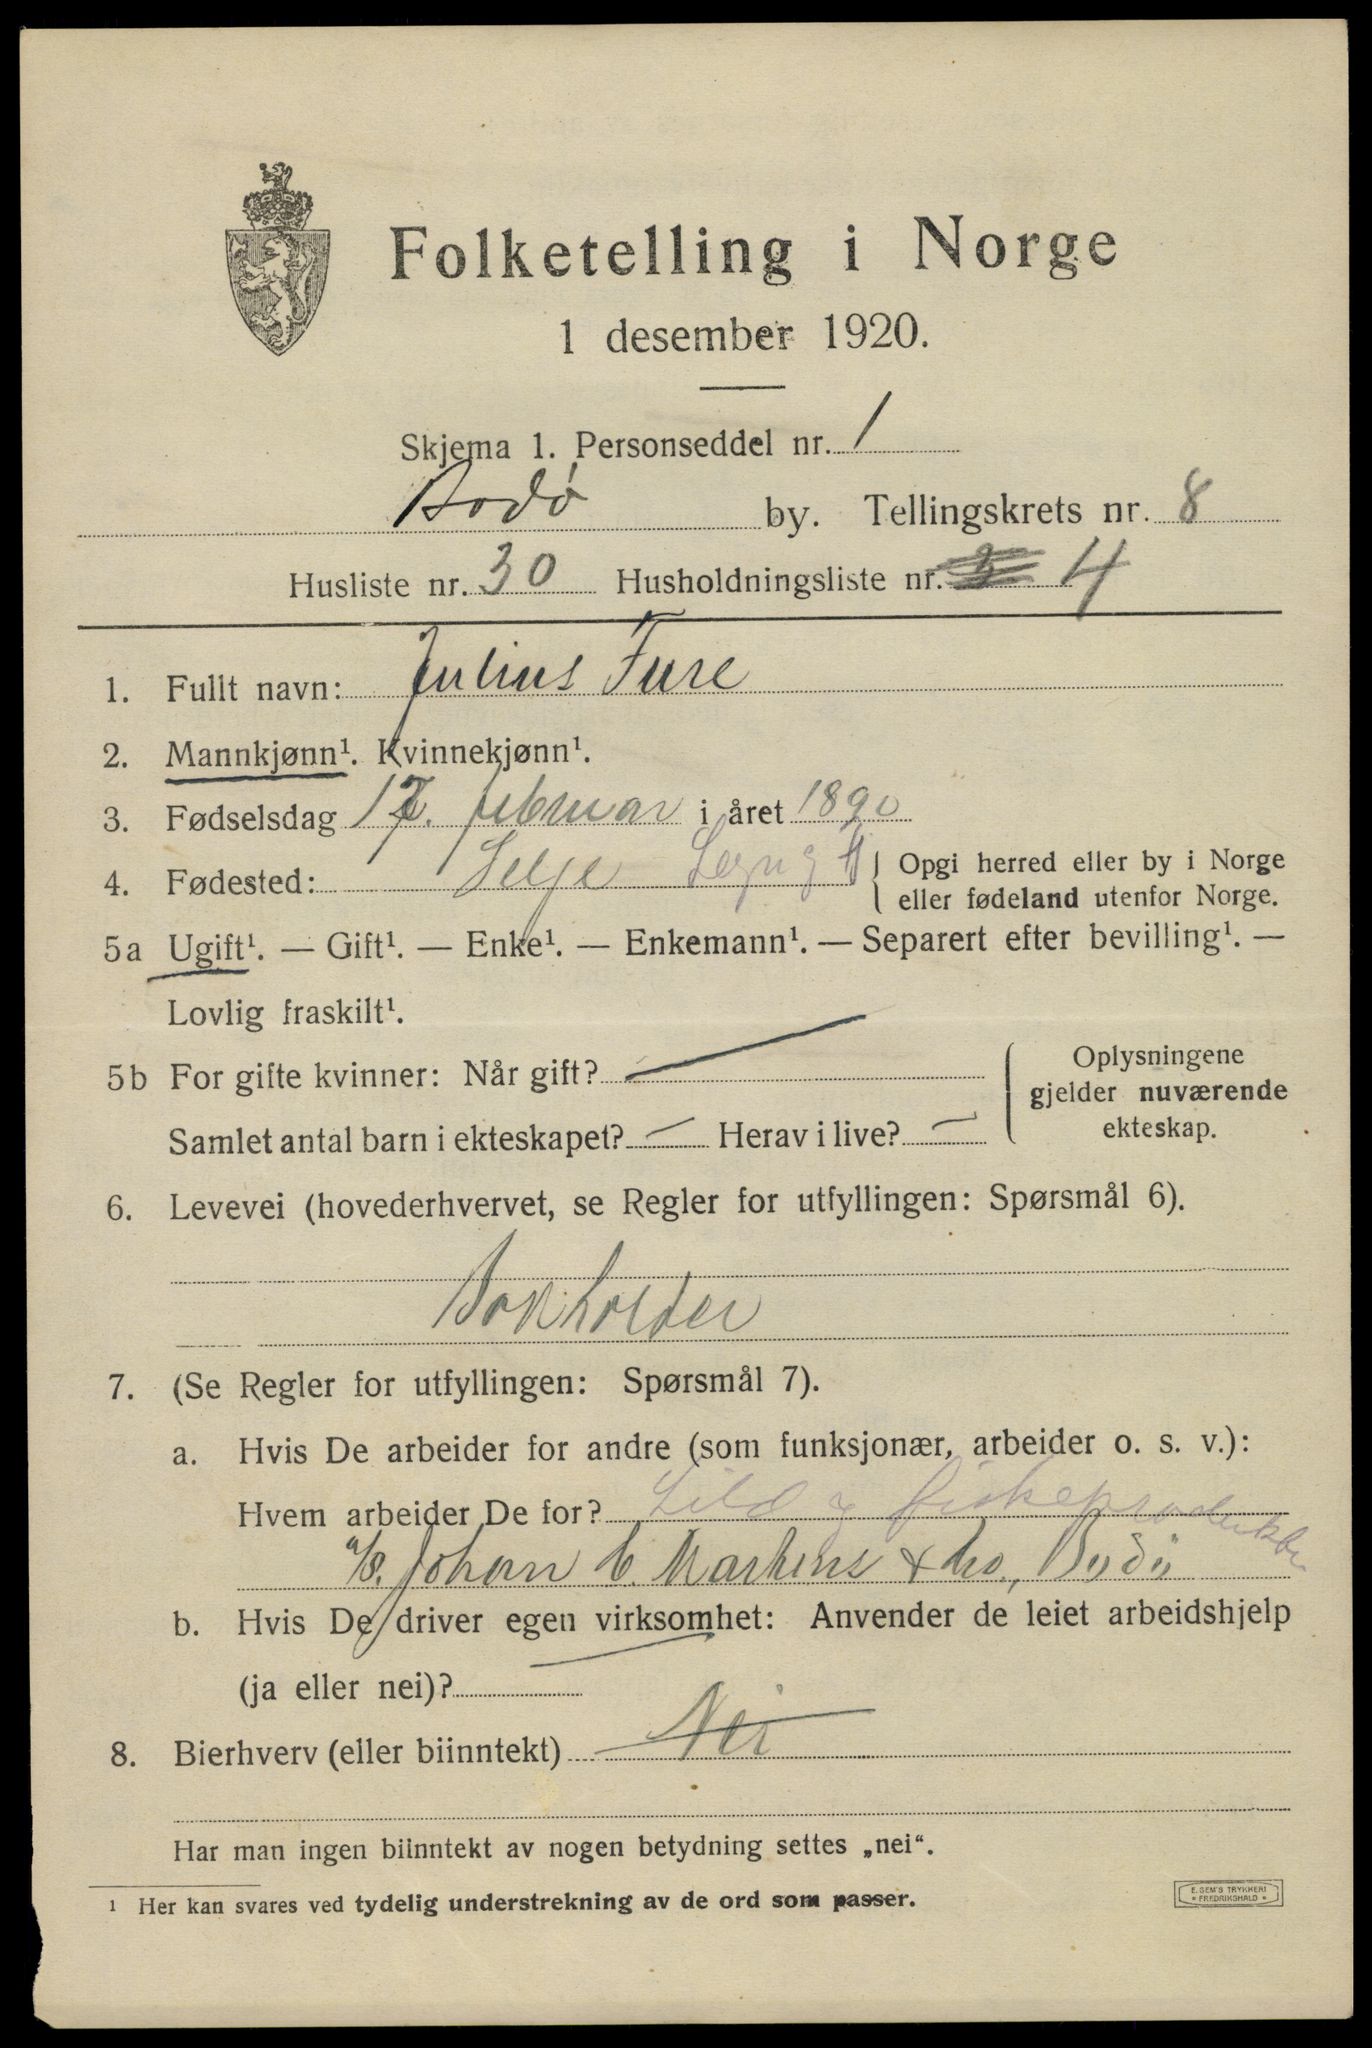 Folketelling i Norge
1 desember 1920.
Skjema 1. Personseddel nr. 1
Bodø by. Tellingskrets nr. 8
Husliste nr. 30 Husholdningsliste nr. 4
1. Fullt navn: Julius Fure
2. Mannkjønn¹. Kvinnekjønn¹.
3. Fødselsdag 17. februar i året 1890
4. Fødested: Selje
Opgi herred eller by i Norge
eller fødeland utenfor Norge.
5a Ugift¹. — Gift¹. — Enke¹. — Enkemann¹. — Separert efter bevilling¹. —
Lovlig fraskilt¹.
5b For gifte kvinner: Når gift? —
Samlet antal barn i ekteskapet? — Herav i live? —
Oplysningene
gjelder nuværende
ekteskap.
6. Levevei (hovederhvervet, se Regler for utfyllingen: Spørsmål 6).
Bokholder
7. (Se Regler for utfyllingen: Spørsmål 7).
a. Hvis De arbeider for andre (som funksjonær, arbeider o. s. v.):
Hvem arbeider De for? Sild og fiskeprodukter
A/S. Johan C. Martens & Co., Bodö
b. Hvis De driver egen virksomhet: Anvender de leiet arbeidshjelp
(ja eller nei)? —
8. Bierhverv (eller biinntekt) Nei
Har man ingen biinntekt av nogen betydning settes „nei“.
¹ Her kan svares ved tydelig understrekning av de ord som passer.
E. SEM'S TRYKKERI
• FREDRIKSHALD •